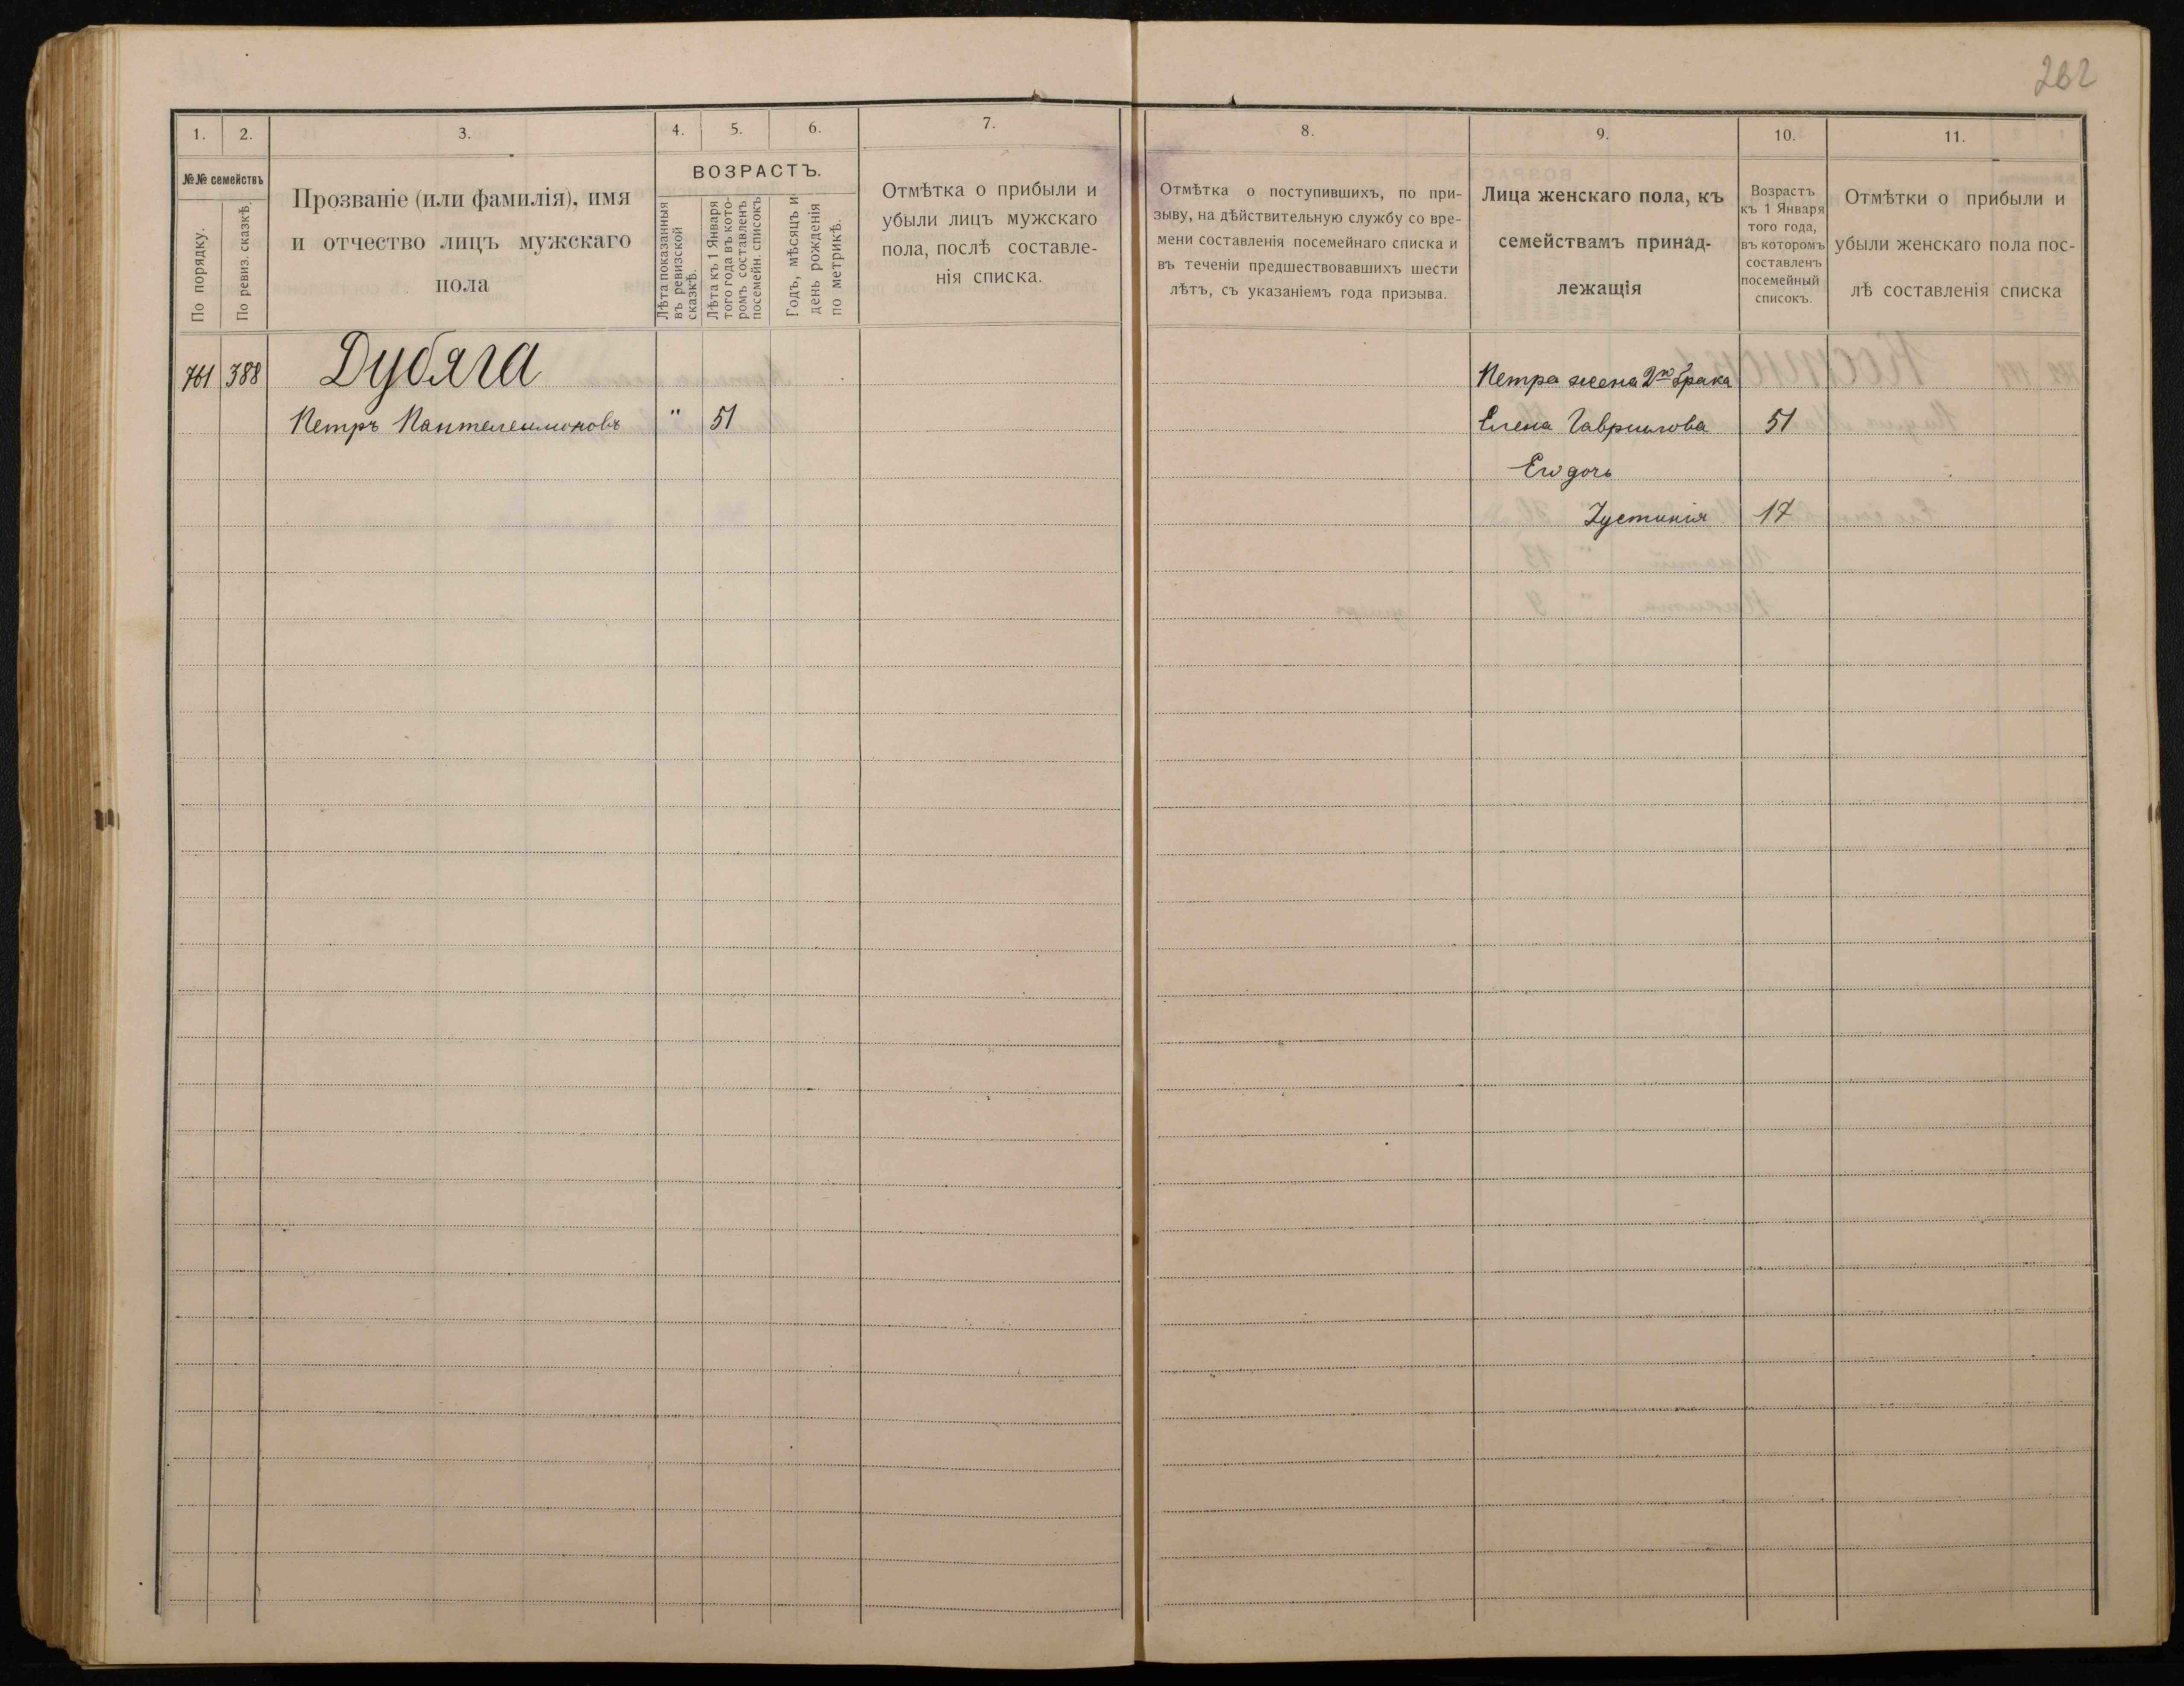 262
1. 2. 3. 4. 5. 6. 7.
№№ семействъ
По порядку.
По ревиз. сказкѣ.
Прозваніе (или фамилія), имя
и отчество лицъ мужскаго
пола
ВОЗРАСТЪ.
Лѣта показанныя
въ ревизской
сказкѣ.
Лѣта къ 1 Января
того года въ кото-
ромъ составленъ
посемейн. списокъ
Годъ, мѣсяцъ и
день рожденія
по метрикѣ.
Отмѣтка о прибыли и
убыли лицъ мужскаго
пола, послѣ составле-
нія списка.
761 388 Дубяга
Петръ Пантелеимоновъ " 51
8. 9. 10. 11.
Отмѣтка о поступившихъ, по при-
зыву, на дѣйствительную службу со вре-
мени составленія посемейнаго списка и
въ теченіи предшествовавшихъ шести
лѣтъ, съ указаніемъ года призыва.
Лица женскаго пола, къ
семействамъ принад-
лежащія
Возрастъ
къ 1 Января
того года,
въ которомъ
составленъ
посемейный
списокъ.
Отмѣтки о прибыли и
убыли женскаго пола пос-
лѣ составленія списка
Петра жена 2го брака
Елена Гаврилова 51
Его дочь
Іустинія 17